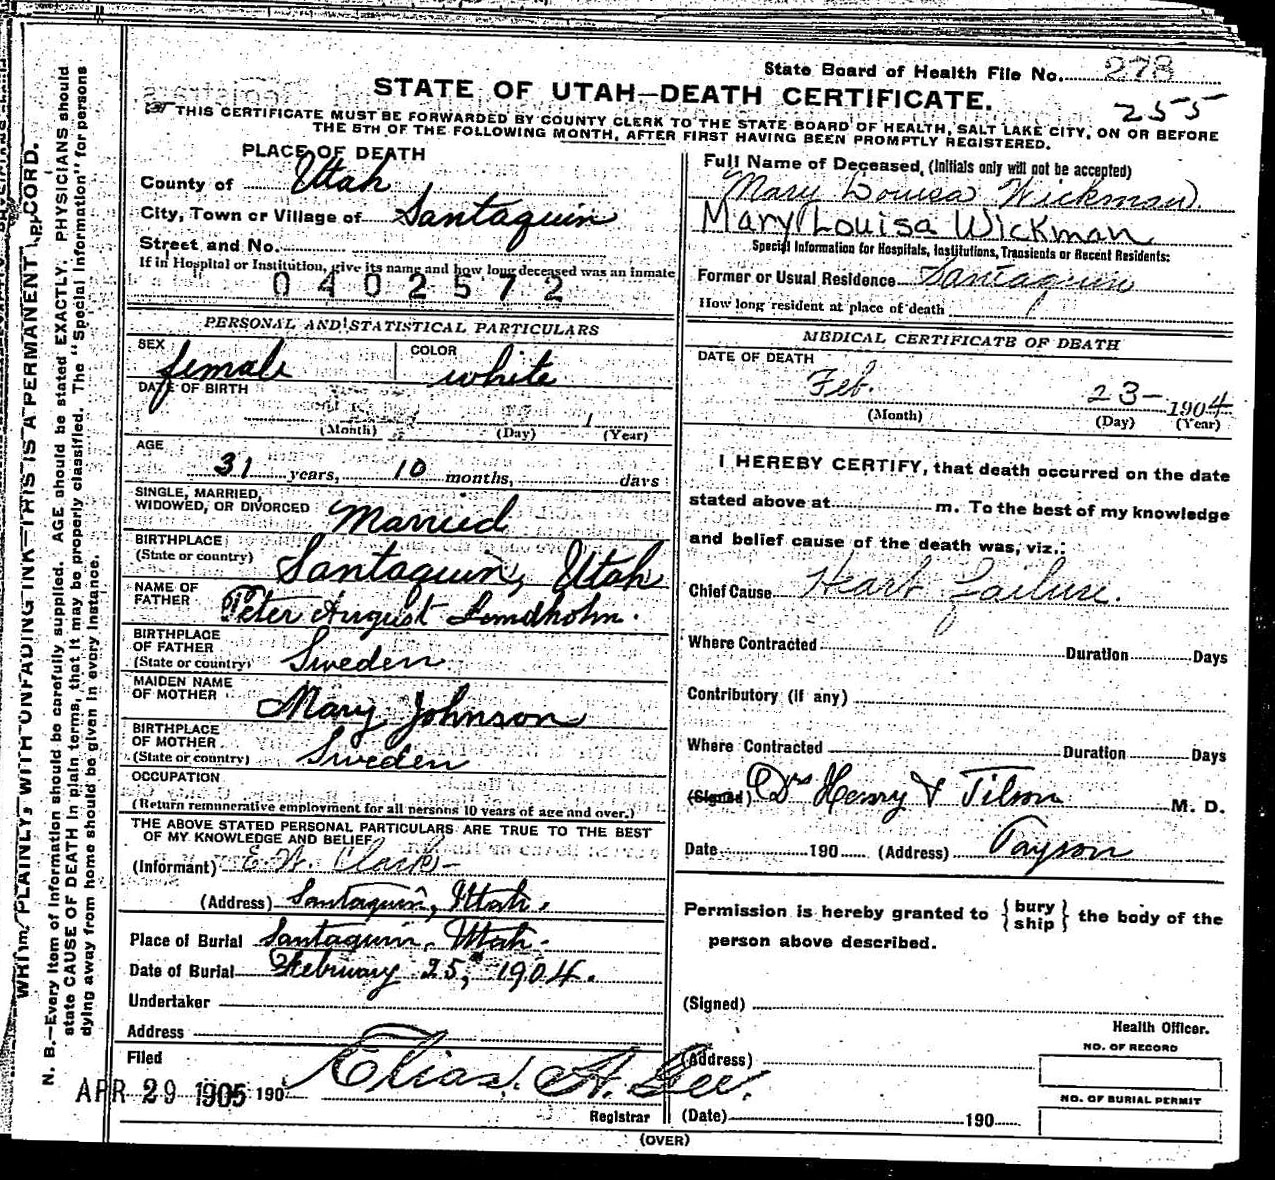 State Board of Health File No. 278
255
STATE OF UTAH—DEATH CERTIFICATE.
THIS CERTIFICATE MUST BE FORWARDED BY COUNTY CLERK TO THE STATE BOARD OF HEALTH, SALT LAKE CITY, ON OR BEFORE
THE 5TH OF THE FOLLOWING MONTH, AFTER FIRST HAVING BEEN PROMPTLY REGISTERED.
WRITE PLAINLY, WITH UNFADING INK—THIS IS A PERMANENT RECORD.
N. B.—Every item of information should be carefully supplied. AGE should be stated EXACTLY. PHYSICIANS should
state CAUSE OF DEATH in plain terms, that it may be properly classified. The "Special Information" for persons
dying away from home should be given in every instance.
PLACE OF DEATH
County of Utah
City, Town or Village of Santaquin
Street and No.
If in Hospital or Institution, give its name and how long deceased was an inmate
0402572
PERSONAL AND STATISTICAL PARTICULARS
SEX female COLOR white
DATE OF BIRTH
(Month) (Day) (Year)
AGE
31 years, 10 months, days
SINGLE, MARRIED,
WIDOWED, OR DIVORCED Married
BIRTHPLACE
(State or country) Santaquin, Utah
NAME OF
FATHER Peter August Lundholm.
BIRTHPLACE
OF FATHER
(State or country) Sweden
MAIDEN NAME
OF MOTHER Mary Johnson
BIRTHPLACE
OF MOTHER
(State or country) Sweden
OCCUPATION
(Return remunerative employment for all persons 10 years of age and over.)
THE ABOVE STATED PERSONAL PARTICULARS ARE TRUE TO THE BEST
OF MY KNOWLEDGE AND BELIEF
(Informant) E. W. Clark
(Address) Santaquin, Utah.
Place of Burial Santaquin, Utah.
Date of Burial February 25, 1904.
Undertaker
Address
Filed
APR 29 1905 190 Elias A. Gee.
Registrar
Full Name of Deceased, (Initials only will not be accepted)
Mary Louisa Wickman
Mary Louisa Wickman
Special Information for Hospitals, Institutions, Transients or Recent Residents:
Former or Usual Residence Santaquin
How long resident at place of death
MEDICAL CERTIFICATE OF DEATH
DATE OF DEATH
Feb. 23- 1904
(Month) (Day) (Year)
I HEREBY CERTIFY, that death occurred on the date
stated above at m. To the best of my knowledge
and belief cause of the death was, viz.:
Chief Cause Heart failure.
Where Contracted Duration Days
Contributory (if any)
Where Contracted Duration Days
(Signed) Drs Henry & Tilson M. D.
Date 190 (Address) Payson
Permission is hereby granted to {bury
ship} the body of the
person above described.
(Signed)
Health Officer.
(Address)
NO. OF RECORD
NO. OF BURIAL PERMIT
(Date) 190
(OVER)